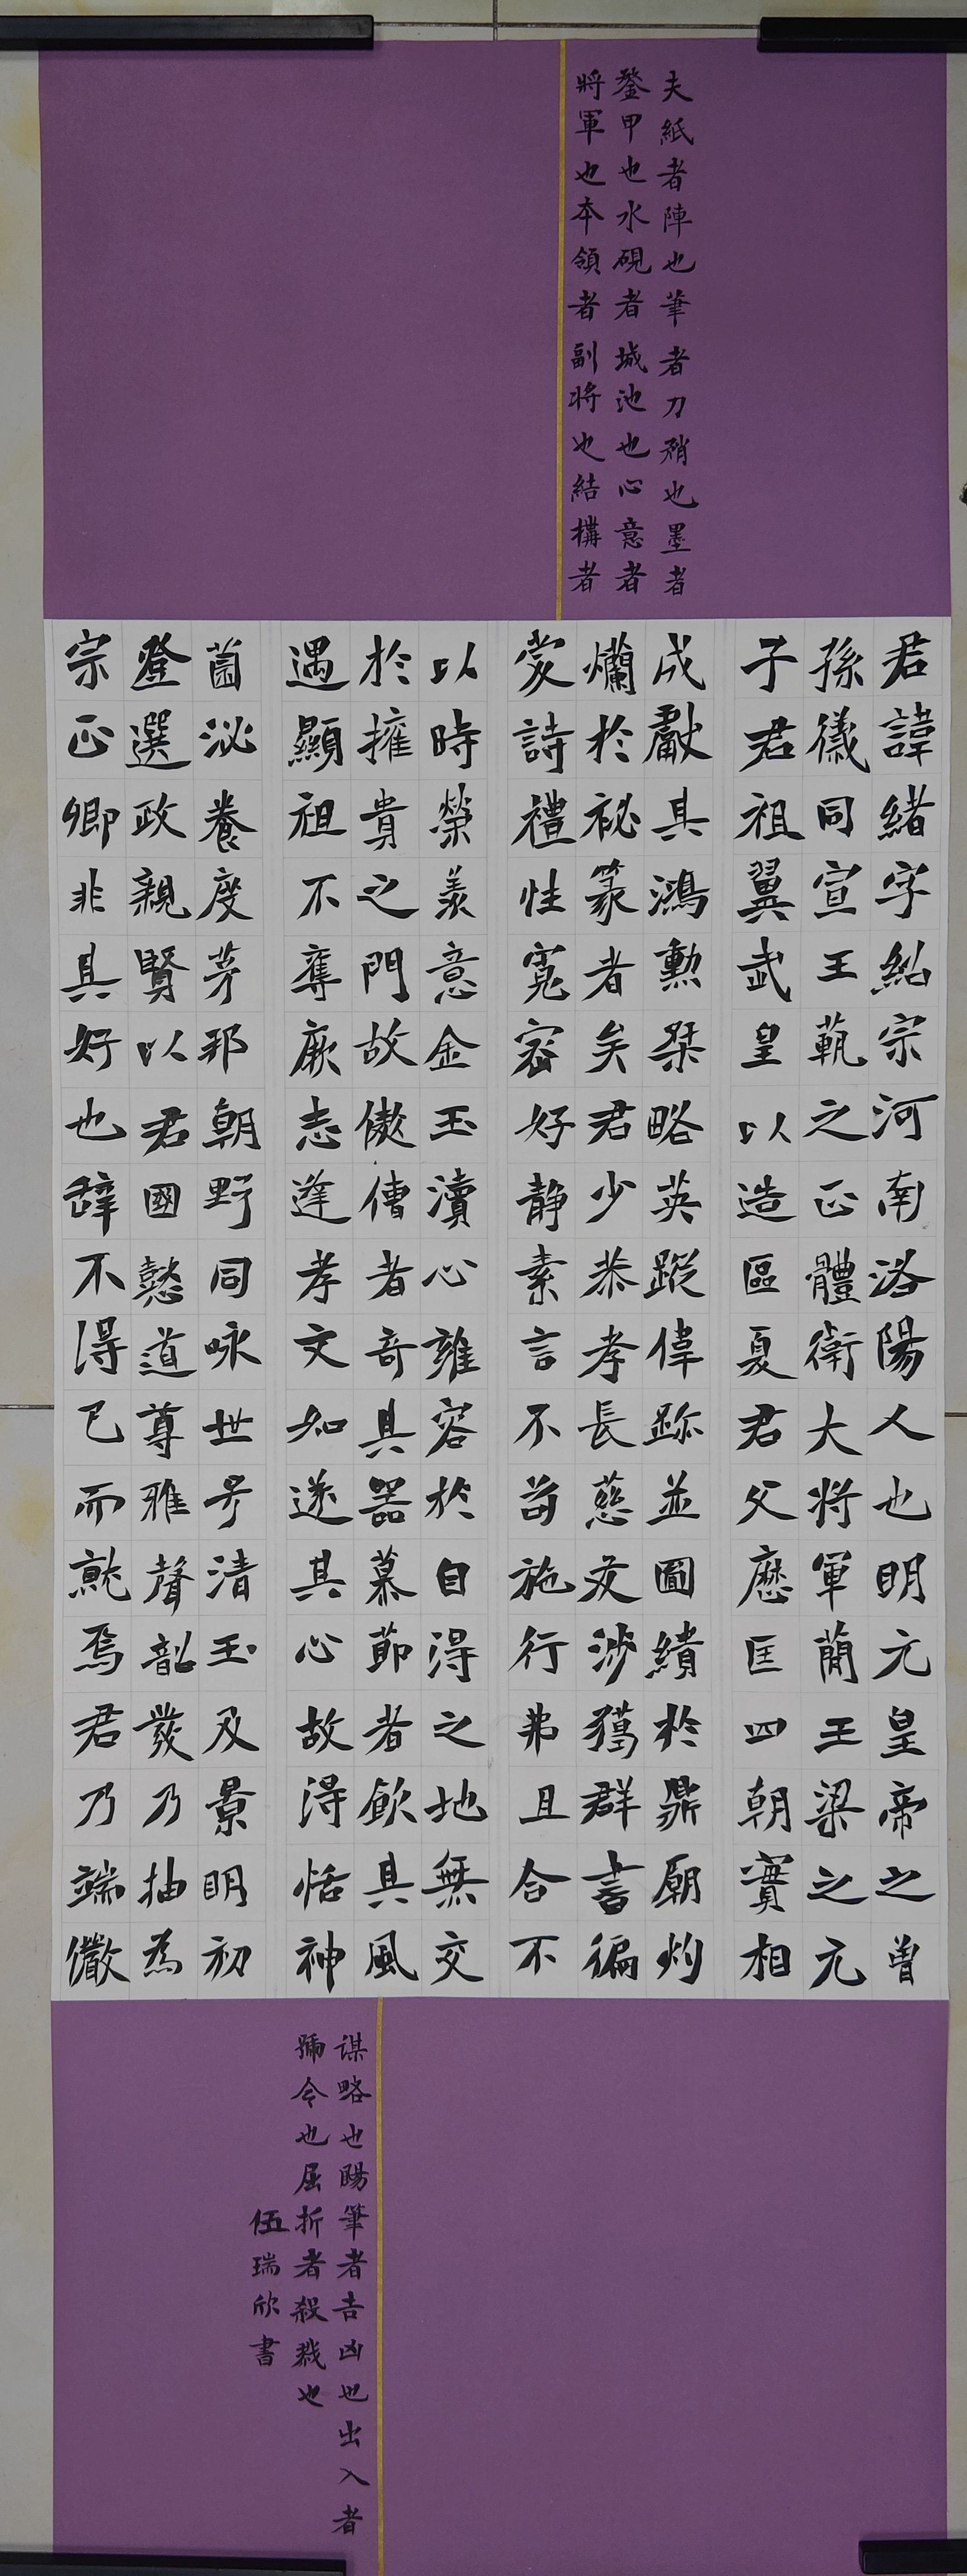 夫紙者陣也筆者刀矟也墨者
鍪甲也水硯者城池也心意者
將軍也本領者副将也結構者
君諱緒字紹宗河南洛陽人也明元皇帝之曾
孫儀同宣王範之正體衛大将軍蘭王梁之元
子君祖翼武皇以造區夏君父歷匡四朝寶相
成獻具鴻勲桀略英蹤偉跡並圖績於鼎廟灼
爛於祕篆者矣君少恭孝長慈友涉獵群書徧
蒙詩禮性寬密好静素言不苟施行弗且合不
以時榮羨意金玉瀆心雍容於自得之地無交
於擁貴之門故傲傳者奇具器慕節者飲具風
遇顯祖不奪厥志逢孝文如遂其心故得恬神
薗泌養度芳邦朝野同咏世号清玉及景明初
登選政親賢以君國懿道尊雅聲韶發乃抽為
宗正卿非具好也辭不得已而就焉君乃端儼
謀略也颺筆者吉凶也出入者
號令也屈折者殺戮也
伍瑞欣書